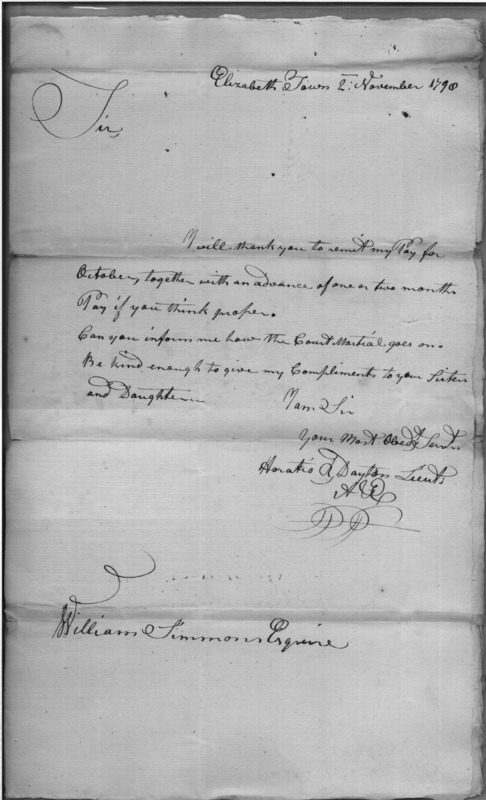 Elizabeth Town 2d November 1798
Sir,
I will thank you to remit my Pay for
October, together with an advance of one or two months
Pay if you think proper.
Can you inform me how the Court Martial goes on.
Be kind enough to give my Compliments to your Sisters
and Daughter
I am Sir
Your Most Obedt Servt
Horatio R Dayton Lieut
William Simmons Esquire